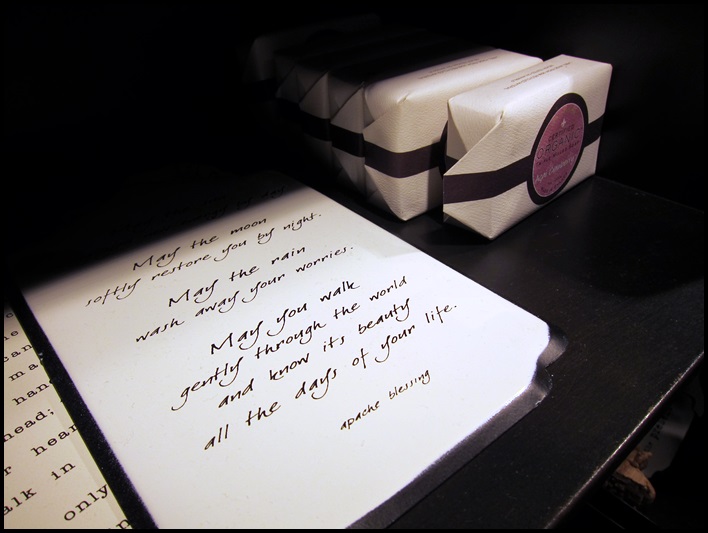 May the moon
softly restore you by night.
May the rain
wash away your worries.
May you walk
gently through the world
and know its beauty
all the days of your life.
apache blessing
can
ma
hand
head;
r hear
alk in
only
ORGANIC